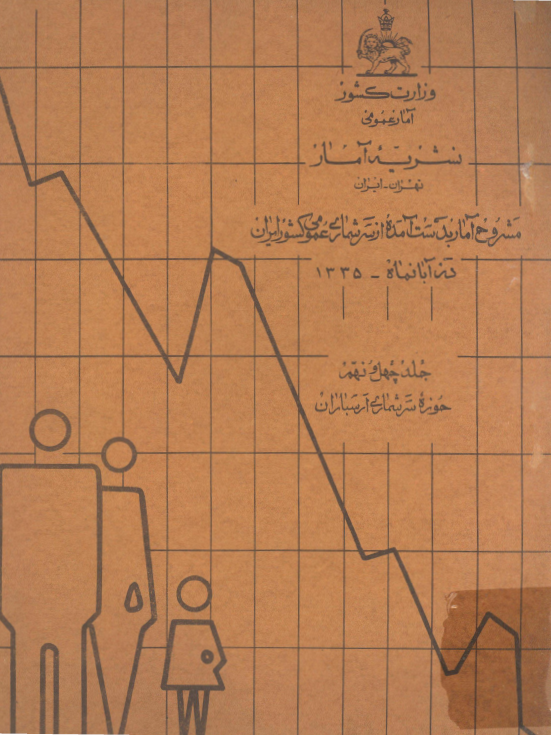 وزارت کشور
آمار عمومی
نشریهٔ آمار
تهران - ایران
مشروح آمار بدست آمده از سرشماری عمومی کشور ایران
در آبانماه - ۱۳۳۵
جلد چهل و نهم
حوزهٔ سرشماری ارسباران